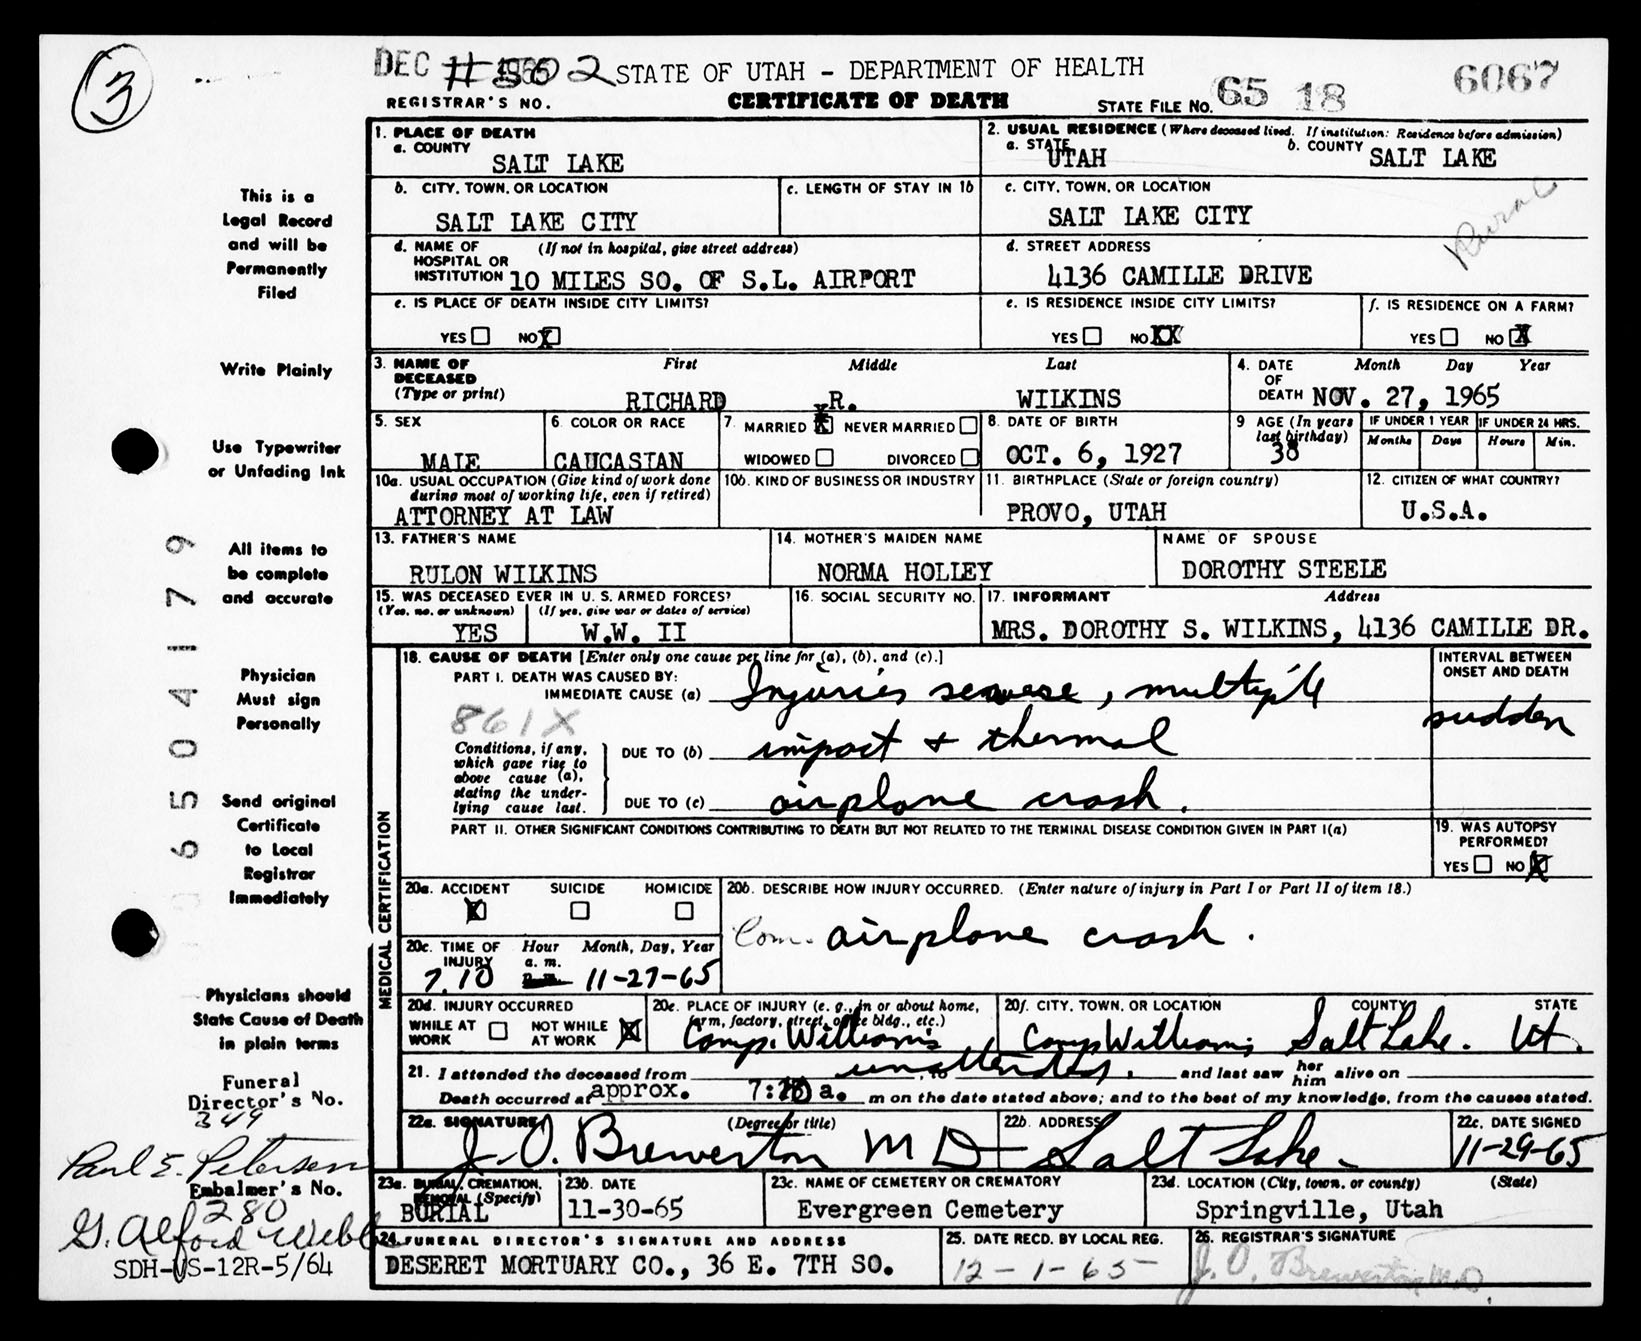 3
DEC # 5602 STATE OF UTAH - DEPARTMENT OF HEALTH
REGISTRAR'S NO. CERTIFICATE OF DEATH STATE FILE NO. 65 18 6067
1. PLACE OF DEATH
a. COUNTY
SALT LAKE
2. USUAL RESIDENCE (Where deceased lived. If institution: Residence before admission)
a. STATE UTAH b. COUNTY SALT LAKE
b. CITY, TOWN, OR LOCATION
SALT LAKE CITY
c. LENGTH OF STAY IN 1b
c. CITY, TOWN, OR LOCATION
SALT LAKE CITY
Rural
d. NAME OF HOSPITAL OR INSTITUTION (If not in hospital, give street address)
10 MILES SO. OF S.L. AIRPORT
d. STREET ADDRESS
4136 CAMILLE DRIVE
e. IS PLACE OF DEATH INSIDE CITY LIMITS?
YES NO X
e. IS RESIDENCE INSIDE CITY LIMITS?
YES NO XX
f. IS RESIDENCE ON A FARM?
YES NO X
3. NAME OF DECEASED (Type or print)
First Middle Last
RICHARD R. WILKINS
4. DATE OF DEATH Month Day Year
NOV. 27, 1965
5. SEX
MALE
6. COLOR OR RACE
CAUCASIAN
7. MARRIED X NEVER MARRIED
WIDOWED DIVORCED
8. DATE OF BIRTH
OCT. 6, 1927
9 AGE (In years last birthday)
38
IF UNDER 1 YEAR IF UNDER 24 HRS.
Months Days Hours Min.
10a. USUAL OCCUPATION (Give kind of work done during most of working life, even if retired)
ATTORNEY AT LAW
10b. KIND OF BUSINESS OR INDUSTRY
11. BIRTHPLACE (State or foreign country)
PROVO, UTAH
12. CITIZEN OF WHAT COUNTRY?
U.S.A.
13. FATHER'S NAME
RULON WILKINS
14. MOTHER'S MAIDEN NAME
NORMA HOLLEY
NAME OF SPOUSE
DOROTHY STEELE
15. WAS DECEASED EVER IN U. S. ARMED FORCES?
(Yes, no, or unknown) (If yes, give war or dates of service)
YES W.W. II
16. SOCIAL SECURITY NO.
17. INFORMANT Address
MRS. DOROTHY S. WILKINS, 4136 CAMILLE DR.
MEDICAL CERTIFICATION
18. CAUSE OF DEATH [Enter only one cause per line for (a), (b), and (c).]
PART I. DEATH WAS CAUSED BY:
IMMEDIATE CAUSE (a) Injuries severe, multiple
861X
Conditions, if any, which gave rise to above cause (a), stating the underlying cause last.
DUE TO (b) impact + thermal
DUE TO (c) airplane crash.
INTERVAL BETWEEN ONSET AND DEATH
sudden
PART II. OTHER SIGNIFICANT CONDITIONS CONTRIBUTING TO DEATH BUT NOT RELATED TO THE TERMINAL DISEASE CONDITION GIVEN IN PART I(a)
19. WAS AUTOPSY PERFORMED?
YES NO X
20a. ACCIDENT SUICIDE HOMICIDE
X
20b. DESCRIBE HOW INJURY OCCURRED. (Enter nature of injury in Part I or Part II of item 18.)
Com. airplane crash.
20c. TIME OF INJURY Hour Month, Day, Year
a. m.
p. m.
7.10 11-27-65
20d. INJURY OCCURRED
WHILE AT WORK NOT WHILE AT WORK X
20e. PLACE OF INJURY (e. g., in or about home, farm, factory, street, office bldg., etc.)
Camp. Williams
20f. CITY, TOWN, OR LOCATION COUNTY STATE
Camp Williams Salt Lake. Ut.
21. I attended the deceased from unattended. to and last saw her him alive on
Death occurred at approx. 7:10 a. m on the date stated above; and to the best of my knowledge, from the causes stated.
22a. SIGNATURE (Degree or title)
J. O. Brewerton M D
22b. ADDRESS
Salt Lake.
22c. DATE SIGNED
11-29-65
23a. BURIAL, CREMATION, REMOVAL (Specify)
BURIAL
23b. DATE
11-30-65
23c. NAME OF CEMETERY OR CREMATORY
Evergreen Cemetery
23d. LOCATION (City, town, or county) (State)
Springville, Utah
24. FUNERAL DIRECTOR'S SIGNATURE AND ADDRESS
DESERET MORTUARY CO., 36 E. 7TH SO.
25. DATE RECD. BY LOCAL REG.
12-1-65
26. REGISTRAR'S SIGNATURE
J. O. Brewerton M.D.
This is a
Legal Record
and will be
Permanently
Filed
Write Plainly
Use Typewriter
or Unfading Ink
All items to
be complete
and accurate
Physician
Must sign
Personally
Send original
Certificate
to Local
Registrar
Immediately
Physicians should
State Cause of Death
in plain terms
Funeral
Director's No.
349
Paul E. Petersen
Embalmer's No.
280
G. Alford Webb
SDH-VS-12R-5/64
06504179